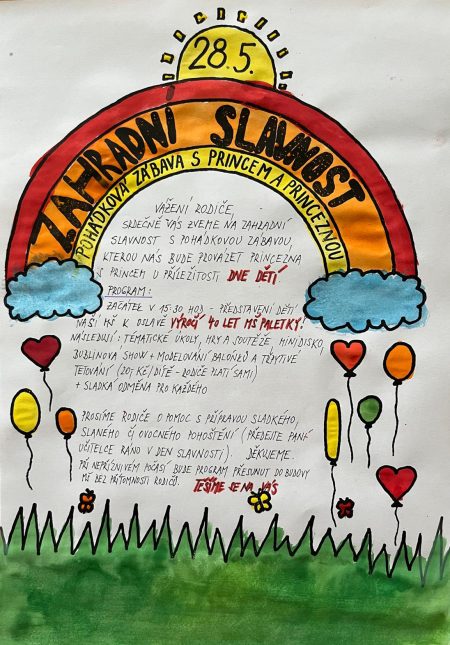 28.5.
ZAHRADNÍ SLAVNOST
POHÁDKOVÁ ZÁBAVA S PRINCEM A PRINCEZNOU
VÁŽENÍ RODIČE,
SRDEČNĚ VÁS ZVEME NA ZAHRADNÍ
SLAVNOST S POHÁDKOVOU ZÁBAVOU,
KTEROU NÁS BUDE PROVÁZET PRINCEZNA
S PRINCEM U PŘÍLEŽITOSTI DNE DĚTÍ
PROGRAM:
ZAČÁTEK V 15:30 HOD - PŘEDSTAVENÍ DĚTÍ
NAŠÍ MŠ K OSLAVĚ VÝROČÍ 40 LET MŠ PALETKY!
NÁSLEDUJÍ: TÉMATICKÉ ÚKOLY, HRY A SOUTĚŽE, MINIDISKO,
BUBLINOVÁ SHOW + MODELOVÁNÍ BALONKŮ A TŘPYTIVÉ
TETOVÁNÍ (20,- KČ/DÍTĚ - RODIČE PLATÍ SAMI)
+ SLADKÁ ODMĚNA PRO KAŽDÉHO
PROSÍME RODIČE O POMOC S PŘÍPRAVOU SLADKÉHO,
SLANÉHO ČI OVOCNÉHO POHOŠTĚNÍ (PŘEDEJTE PANÍ
UČITELCE RÁNO V DEN SLAVNOSTI). DĚKUJEME.
PŘI NEPŘÍZNIVÉM POČASÍ BUDE PROGRAM PŘESUNUT DO BUDOVY
MŠ BEZ PŘÍTOMNOSTI RODIČŮ. TĚŠÍME SE NA VÁS